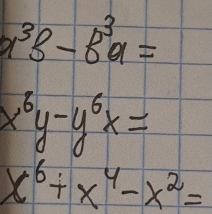 a³b - b³a =
x⁶y - y⁶x =
x⁶ + x⁴ - x² =